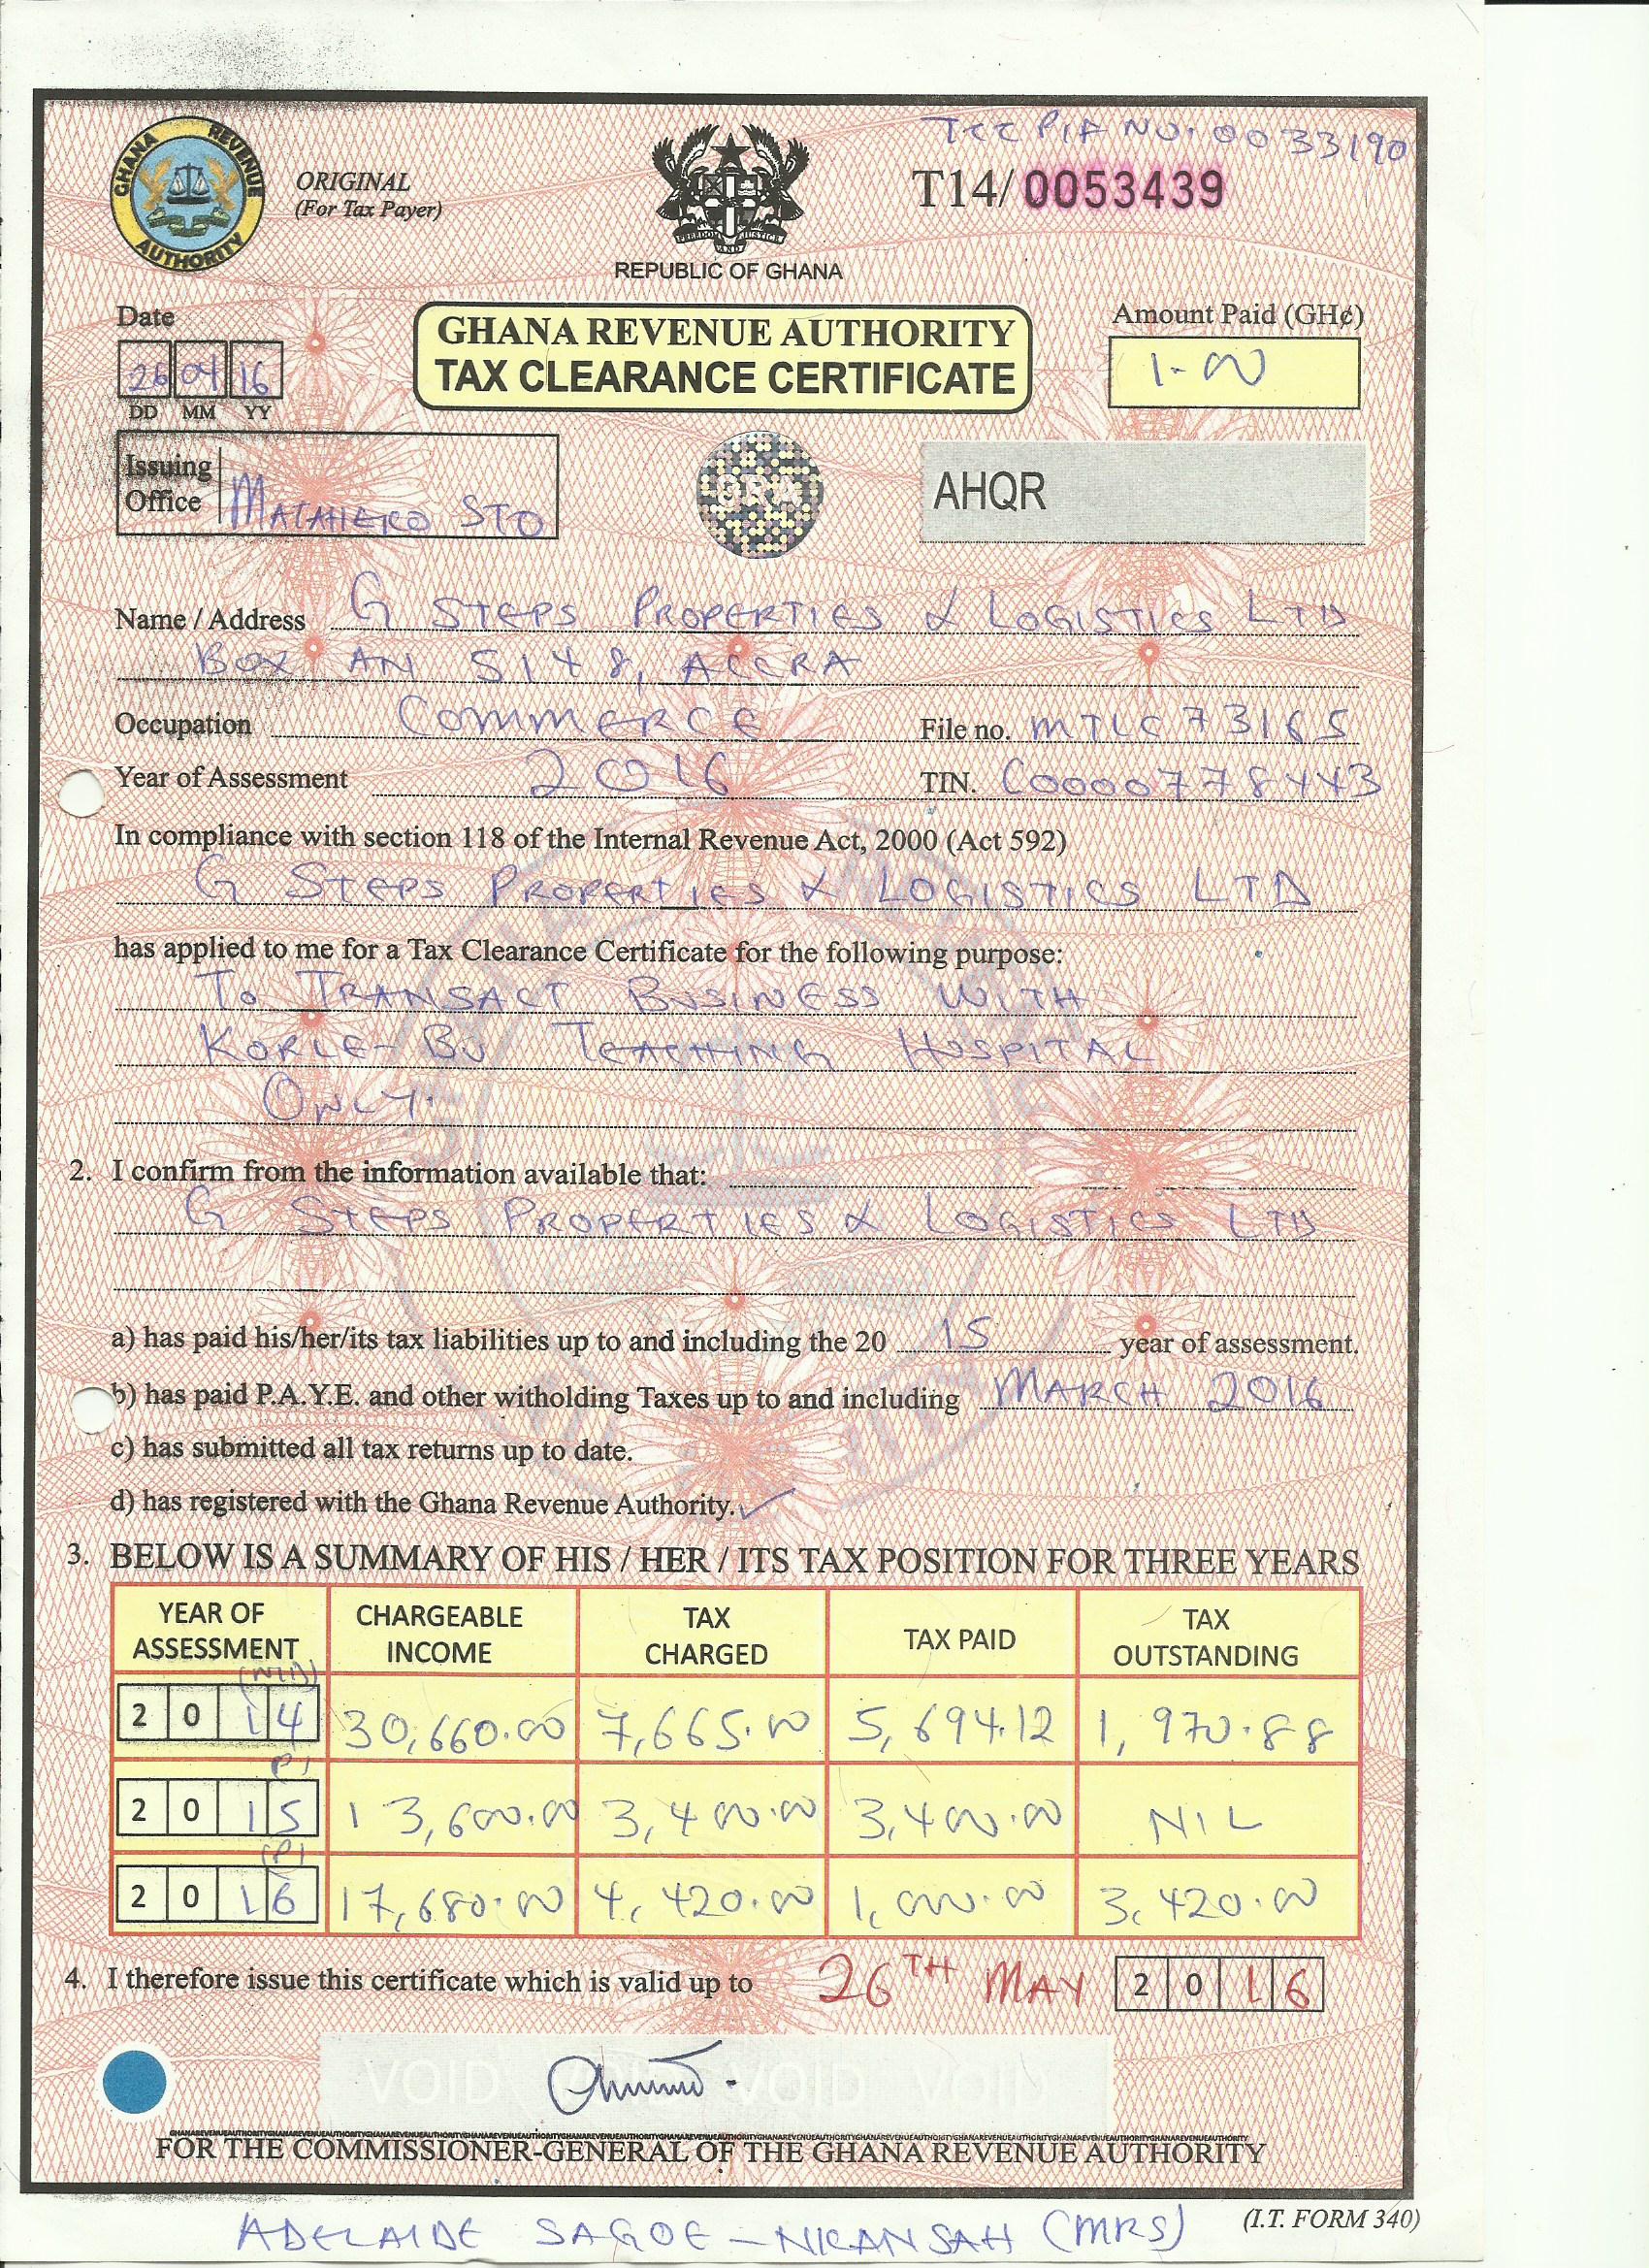 TCC PIF NO. 0033190
GHANA REVENUE AUTHORITY
ORIGINAL
(For Tax Payer)
FREEDOM AND JUSTICE
REPUBLIC OF GHANA
T14/ 0053439
Date
26 04 16
DD MM YY
GHANA REVENUE AUTHORITY
TAX CLEARANCE CERTIFICATE
Amount Paid (GH¢)
1-00
Issuing
Office MATAHEKO STO
GRA
AHQR
Name / Address G STEPS PROPERTIES & LOGISTICS LTD
BOX AN 5148, ACCRA
Occupation COMMERCE File no. MTLC73165
Year of Assessment 2016 TIN. C0000778443
In compliance with section 118 of the Internal Revenue Act, 2000 (Act 592)
G STEPS PROPERTIES & LOGISTICS LTD
has applied to me for a Tax Clearance Certificate for the following purpose:
TO TRANSACT BUSINESS WITH
KORLE-BU TEACHING HOSPITAL
ONLY.
2. I confirm from the information available that:
G STEPS PROPERTIES & LOGISTICS LTD
a) has paid his/her/its tax liabilities up to and including the 20 15 year of assessment.
b) has paid P.A.Y.E. and other witholding Taxes up to and including MARCH 2016
c) has submitted all tax returns up to date.
d) has registered with the Ghana Revenue Authority. ✓
3. BELOW IS A SUMMARY OF HIS / HER / ITS TAX POSITION FOR THREE YEARS
YEAR OF ASSESSMENT CHARGEABLE INCOME TAX CHARGED TAX PAID TAX OUTSTANDING
2014 30,660.00 7,665.00 5,694.12 1,970.88
(P)
2015 13,600.00 3,400.00 3,400.00 NIL
(P)
2016 17,680.00 4,420.00 1,000.00 3,420.00
4. I therefore issue this certificate which is valid up to 26TH MAY 2016
VOID VOID VOID VOID
FOR THE COMMISSIONER-GENERAL OF THE GHANA REVENUE AUTHORITY
(I.T. FORM 340)
ADELAIDE SAGOE-NKANSAH (MRS)